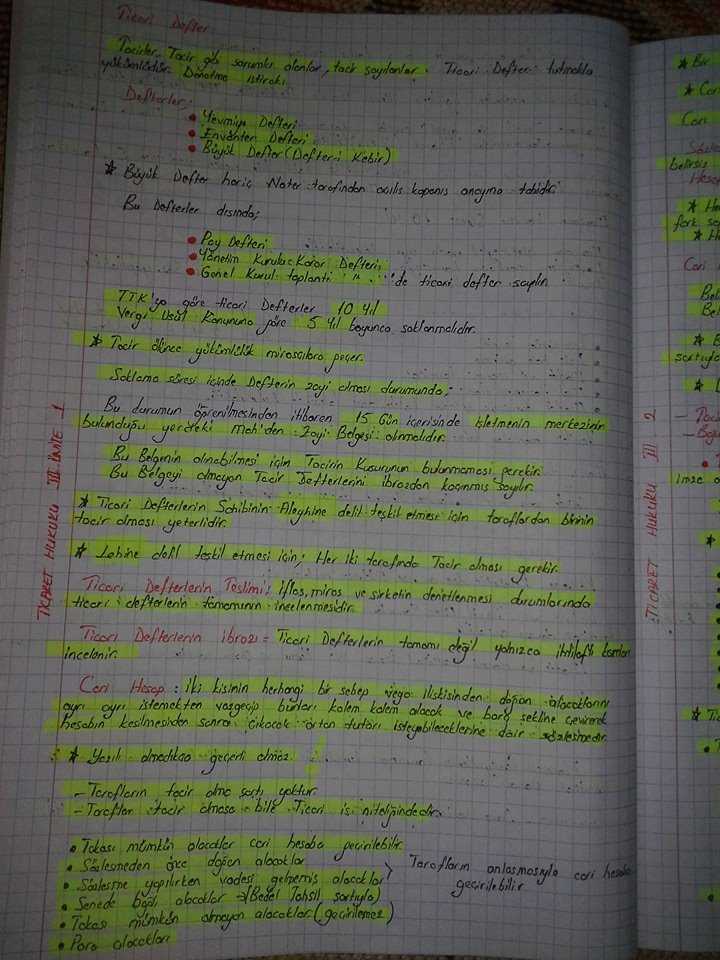 Ticari Defter
Tacirler, Tacir gibi sorumlu olanlar, tacir sayılanlar. Ticari Defter tutmakla
yükümlüdür. Donatma iştiraki
Defterler;
• Yevmiye Defteri
• Envanter Defteri
• Büyük Defter (Defteri Kebir)
* Büyük Defter hariç Noter tarafından açılış kapanış onayına tabidir.
Bu Defterler dışında;
• Pay Defteri
• Yönetim Kurulu Karar Defteri
• Genel Kurul toplantı " " 'de ticari defter sayılır.
TTK'ya göre ticari Defterler 10 Yıl
Vergi Usül Kanununa göre 5 Yıl boyunca saklanmalıdır.
* Tacir ölünce yükümlülük mirasçılara geçer.
Saklama süresi içinde Defterin zayi olması durumunda;
Bu durumun öğrenilmesinden itibaren 15 Gün içerisinde işletmenin merkezinin
bulunduğu yerdeki Mah'den Zayi Belgesi alınmalıdır.
Bu Belgenin alınabilmesi için Tacirin Kusurunun bulunmaması gerekir.
Bu Belgeyi almayan Tacir Defterlerini ibrazdan kaçınmış sayılır.
* Ticari Defterlerin Sahibinin Aleyhine delil teşkil etmesi için taraflardan birinin
tacir olması yeterlidir.
* Lehine delil teşkil etmesi için; Her iki tarafında Tacir olması gerekir.
Ticari Defterlerin Teslimi; İflas, miras ve şirketin denetlenmesi durumlarında
ticari defterlerin tamamının incelenmesidir.
Ticari Defterlerin ibrazı = Ticari Defterlerin tamamı değil yalnızca ihtilaflı kısımları
incelenir.
Cari Hesap: iki kişinin herhangi bir sebep veya ilişkisinden doğan alacaklarını
ayrı ayrı istemekten vazgeçip bunları kalem kalem alacak ve borç şekline çevirerek
hesabın kesilmesinden sonra çıkacak artan tutarı isteyebileceklerine dair sözleşmedir.
* Yazılı olmadıkça geçerli olmaz.
- Tarafların tacir olma şartı yoktur.
- Taraflar tacir olmasa bile Ticari iş niteliğindedir.
• Takası mümkün alacaklar cari hesaba geçirilebilir.
• Sözleşmeden önce doğan alacaklar
• Sözleşme yapılırken vadesi gelmemiş alacaklar
> Tarafların anlaşmasıyla cari hesaba
geçirilebilir
• Senede bağlı alacaklar → (Bedel Tahsil şartıyla)
• Takası mümkün olmayan alacaklar (geçirilemez)
• Para alacakları
TİCARET HUKUKU III ÜNİTE 1
TİCARET HUKUKU III 2
* Bir
* Cari
Cari
belirsiz
Hesap
* He
fark
* H
Cari
Bel
Bel
* B
şartıyla
imza